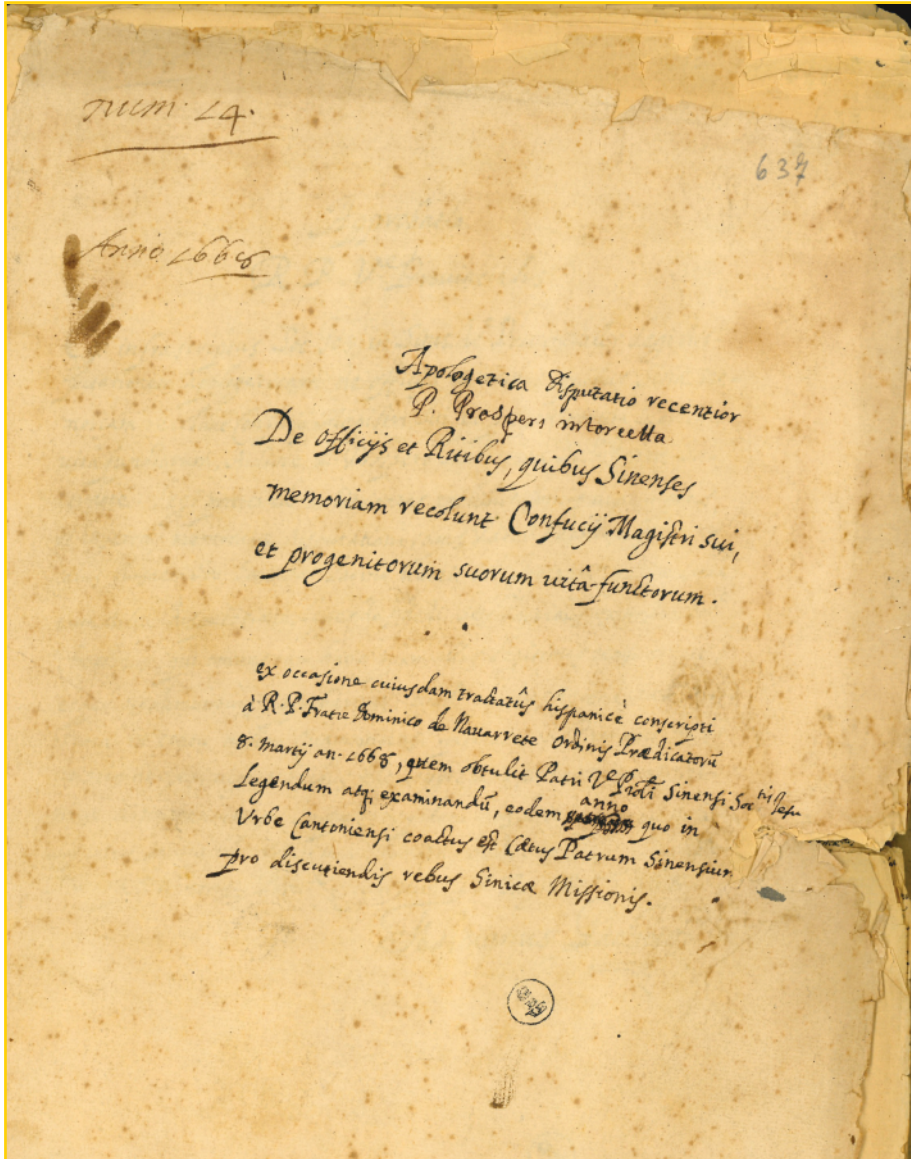 num. 14.
637
Anno 1668
Apologetica Disputatio recentior
P. Prosperi intorcetta
De officijs et Ritibus, quibus Sinenses
memoriam recolunt Confucij Magistri sui,
et progenitorum suorum vitâ functorum.
ex occasione cuiusdam tractatûs hispanicè conscripti
à R. P. Fratre Dominico de Navarrete Ordinis Prædicatorũ
8. martij an. 1668, quem obtulit Patri V. Prouli Sinensi Soc.tis Jesu
Legendum atq; examinandũ, eodem anno quo in
Vrbe Cantoniensi coactus est Cœtus Patrum Sinensium
pro discutiendis rebus Sinicæ Missionis.